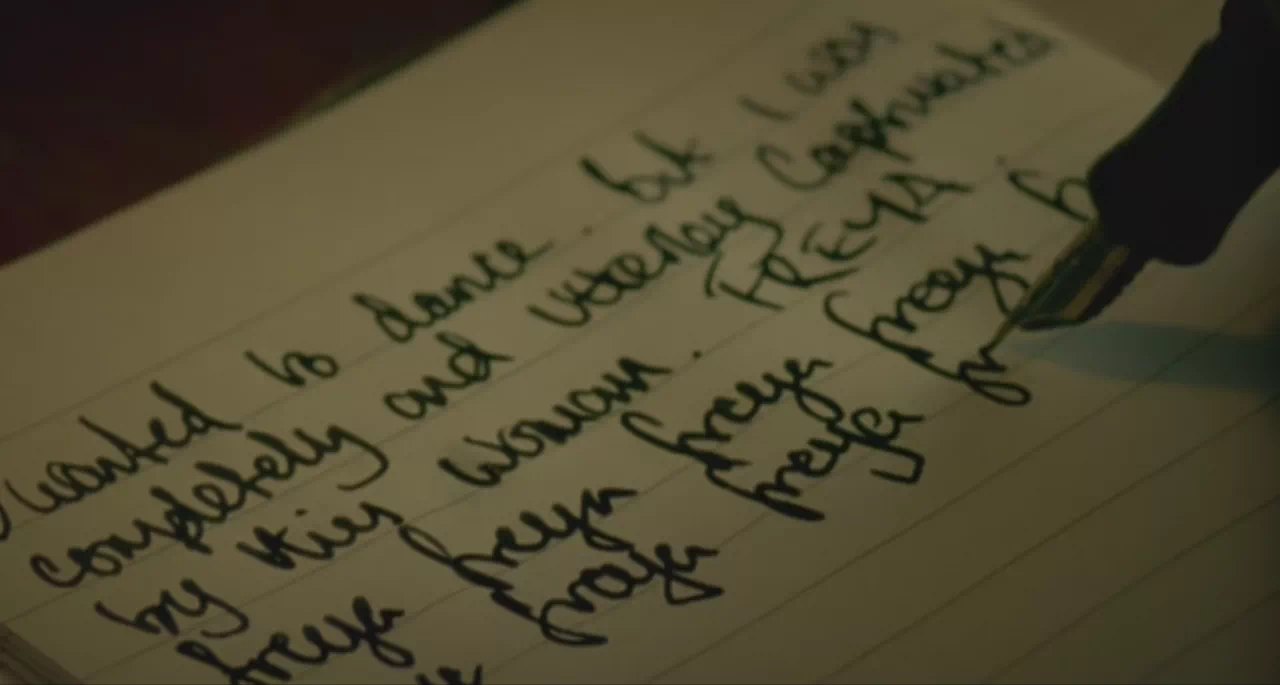 I wanted to dance. but I was
completely and utterley captivated
by this woman. FREYA.
freya freya freya freya fr
freya freya fr